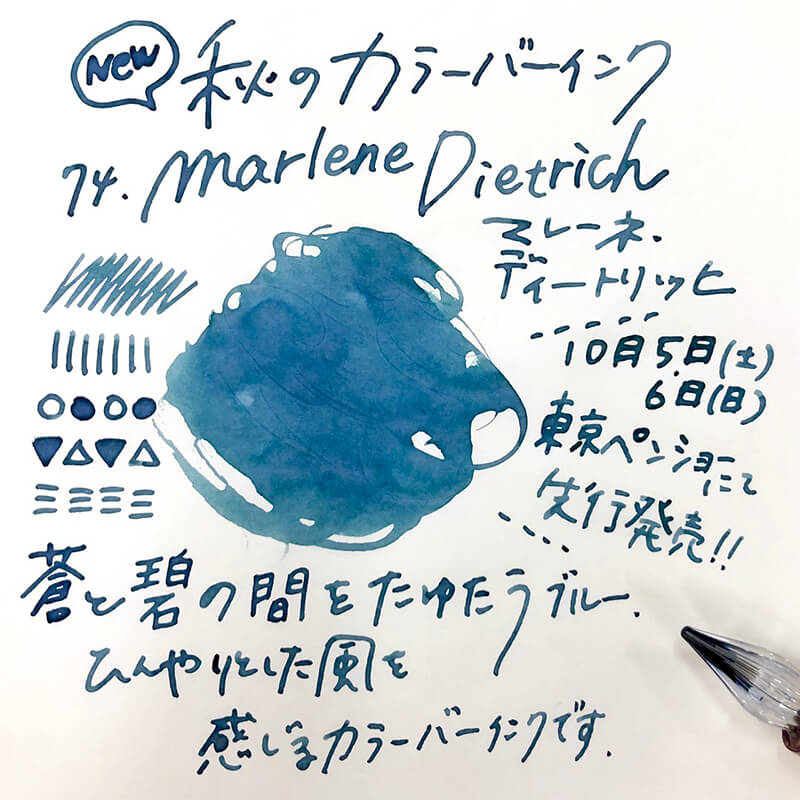 New 秋のカラーバーインク
74. Marlene Dietrich
マレーネ.
ディートリッヒ
10月5日(土)
6日(日)
東京ペンショーにて
先行発売!!
蒼と碧の間をたゆたうブルー.
ひんやりとした風を
感じるカラーバーインクです.